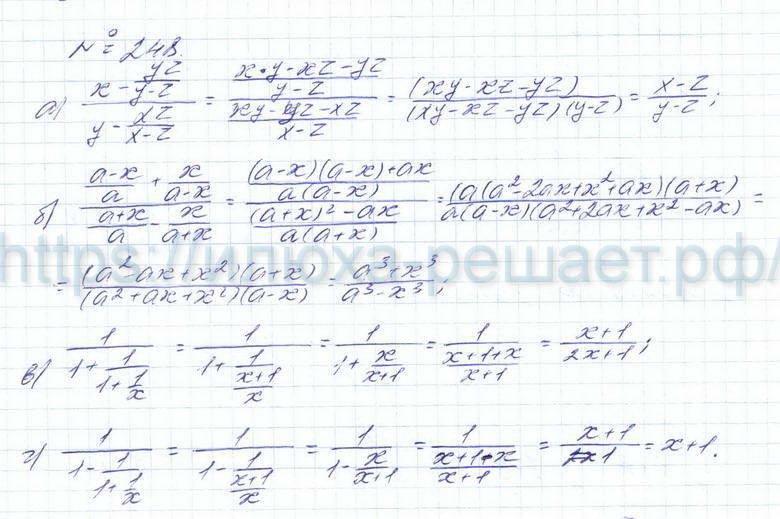 № 248.
а) (x - yz/(y-z)) / (y - xz/(x-z)) = ((x·y-xz-yz)/(y-z)) / ((xy-yz-xz)/(x-z)) = (xy-xz-yz) / ((xy-xz-yz)(y-z)) = (x-z)/(y-z);
б) ((a-x)/a + x/(a-x)) / ((a+x)/a - x/(a+x)) = (((a-x)(a-x)+ax)/(a(a-x))) / (((a+x)²-ax)/(a(a+x))) = (a(a²-2ax+x²+ax)(a+x) / (a(a-x)(a²+2ax+x²-ax) =
https://илюха-решает.рф/
= ((a²-ax+x²)(a+x)) / ((a²+ax+x²)(a-x)) = (a³+x³)/(a³-x³);
в) 1/(1+1/(1+1/x)) = 1/(1+1/((x+1)/x)) = 1/(1+x/(x+1)) = 1/((x+1+x)/(x+1)) = (x+1)/(2x+1);
г) 1/(1-1/(1+1/x)) = 1/(1-1/((x+1)/x)) = 1/(1-x/(x+1)) = 1/((x+1-x)/(x+1)) = (x+1)/1 = x+1.